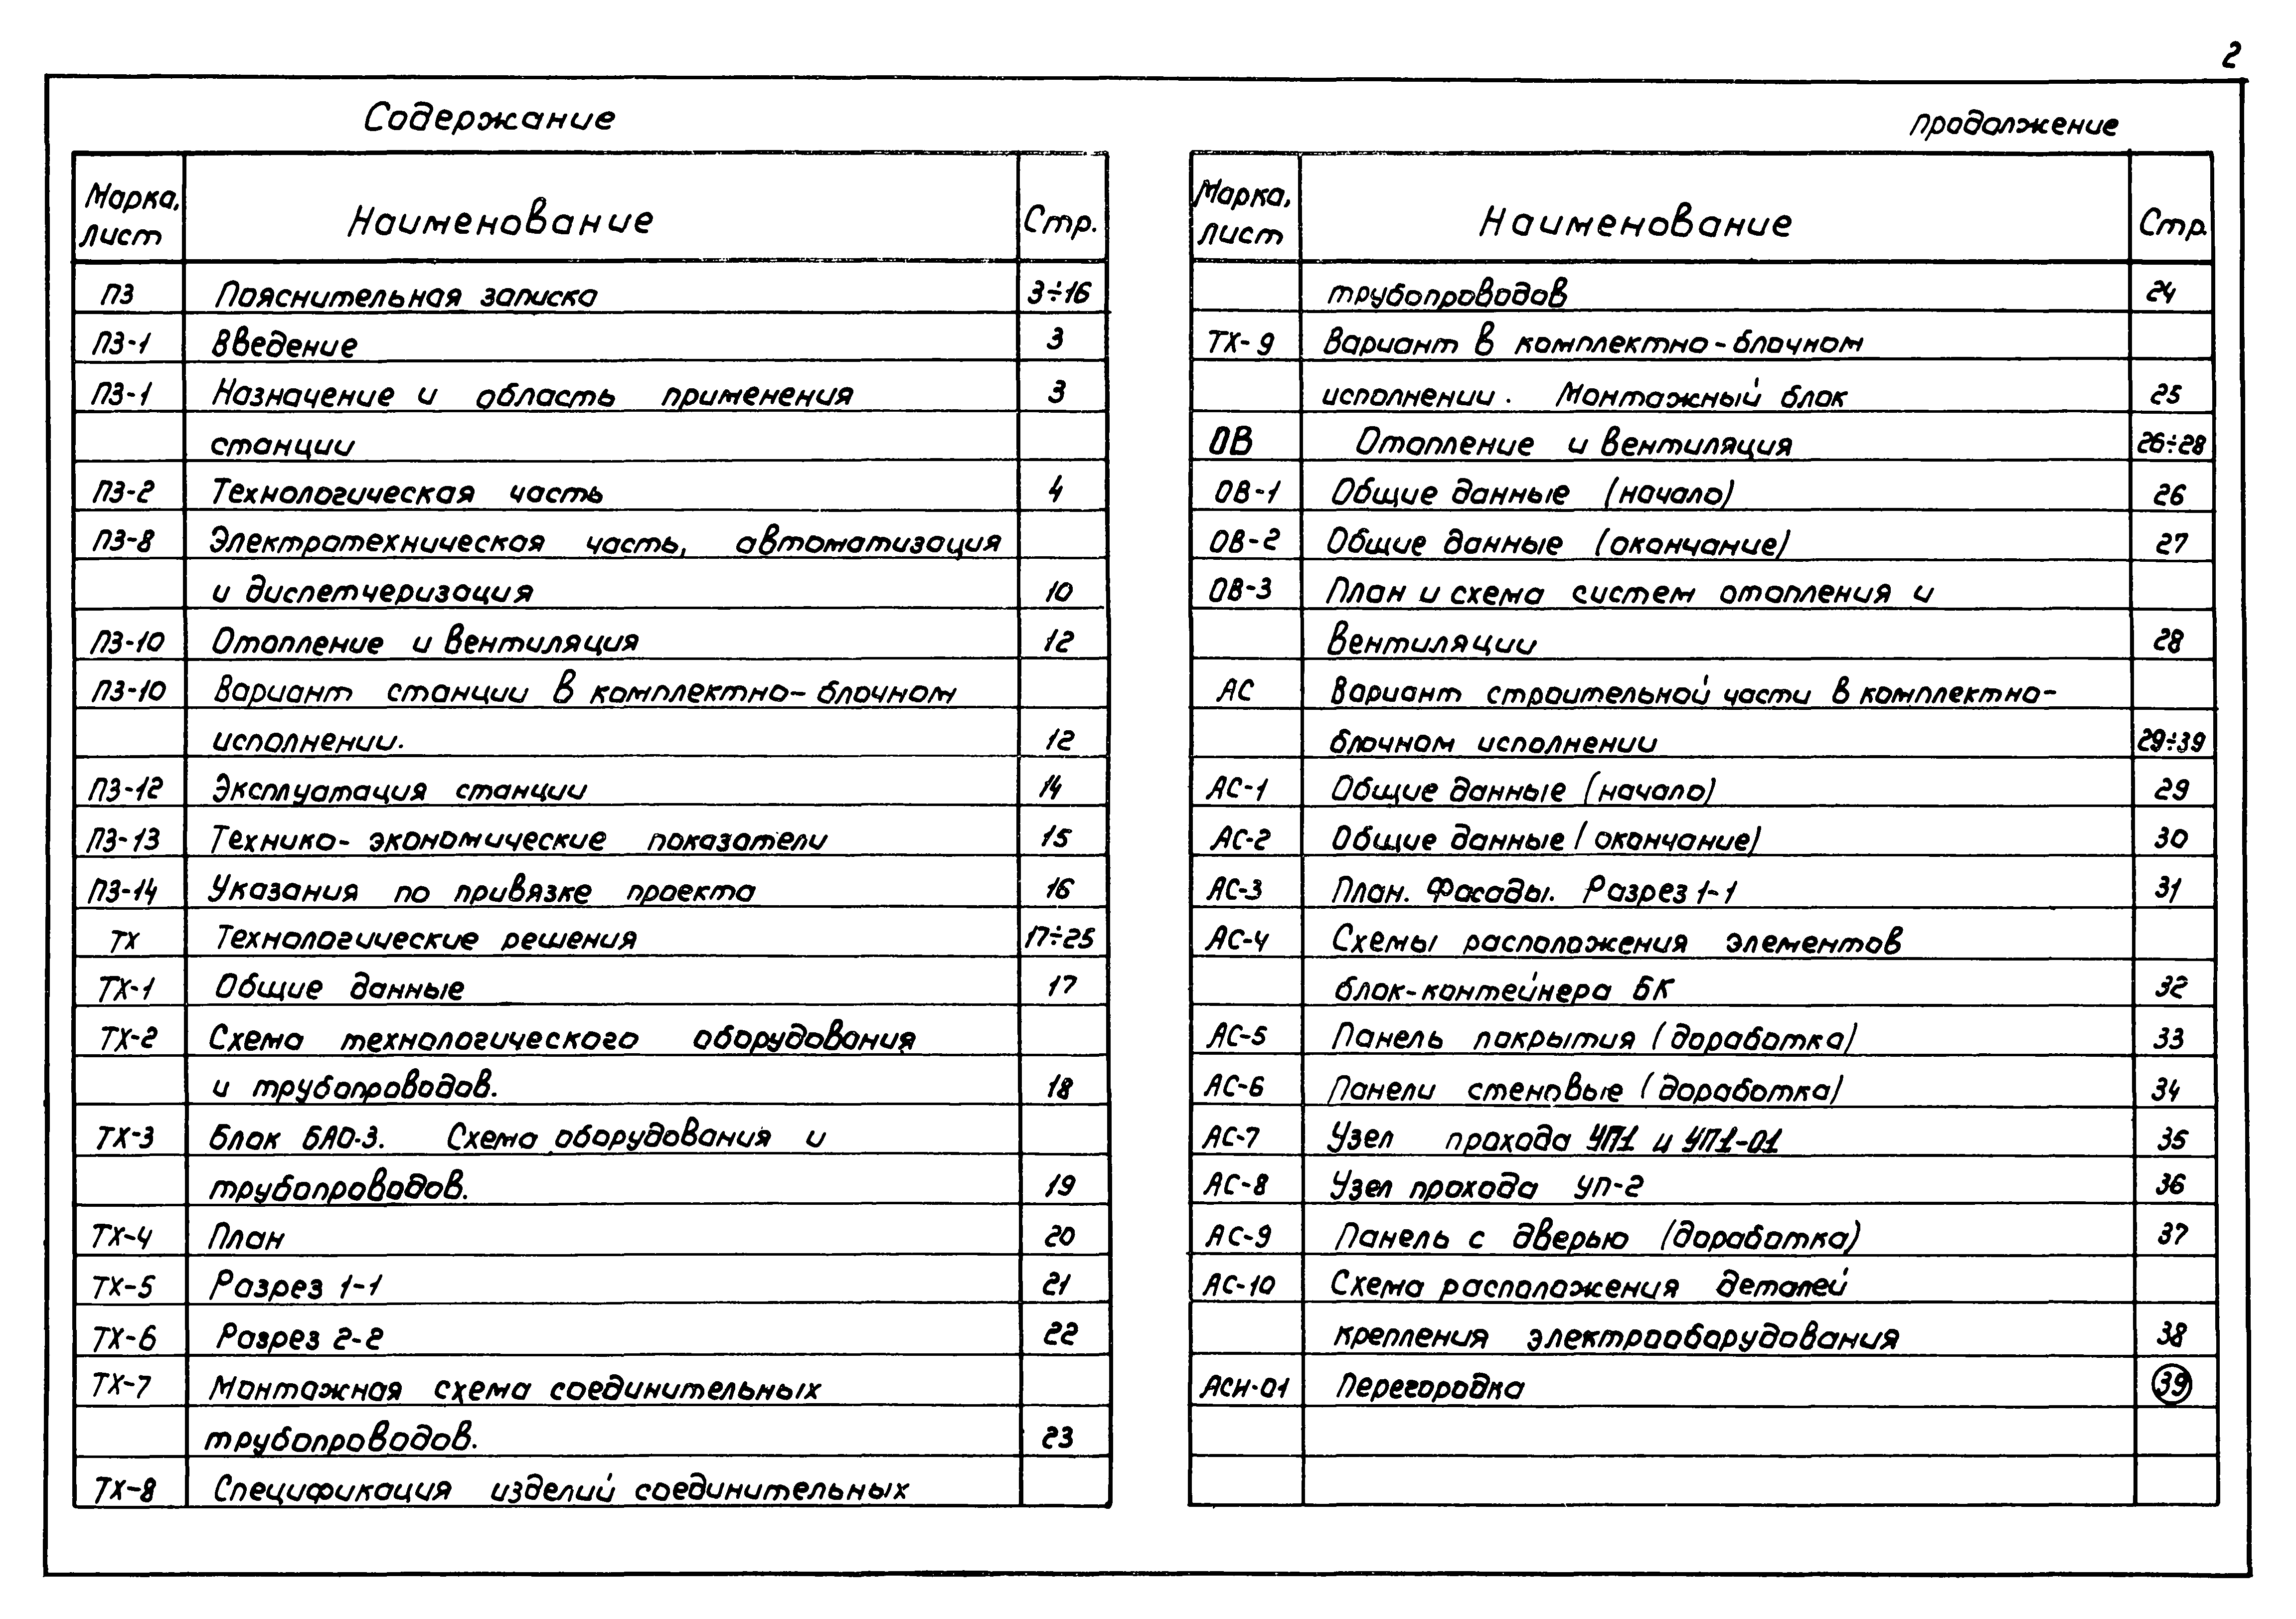 2
Содержание
Марка, лист Наименование Стр.
ПЗ Пояснительная записка 3÷16
ПЗ-1 Введение 3
ПЗ-1 Назначение и область применения 3
станции
ПЗ-2 Технологическая часть 4
ПЗ-8 Электротехническая часть, автоматизация
и диспетчеризация 10
ПЗ-10 Отопление и вентиляция 12
ПЗ-10 Вариант станции в комплектно-блочном
исполнении. 12
ПЗ-12 Эксплуатация станции 14
ПЗ-13 Технико-экономические показатели 15
ПЗ-14 Указания по привязке проекта 16
ТХ Технологические решения 17÷25
ТХ-1 Общие данные 17
ТХ-2 Схема технологического оборудования
и трубопроводов. 18
ТХ-3 Блок БАО-3. Схема оборудования и
трубопроводов. 19
ТХ-4 План 20
ТХ-5 Разрез 1-1 21
ТХ-6 Разрез 2-2 22
ТХ-7 Монтажная схема соединительных
трубопроводов. 23
ТХ-8 Спецификация изделий соединительных
продолжение
Марка, лист Наименование Стр.
трубопроводов 24
ТХ-9 Вариант в комплектно-блочном
исполнении. Монтажный блок 25
ОВ Отопление и вентиляция 26÷28
ОВ-1 Общие данные (начало) 26
ОВ-2 Общие данные (окончание) 27
ОВ-3 План и схема систем отопления и
вентиляции 28
АС Вариант строительной части в комплектно-
блочном исполнении 29÷39
АС-1 Общие данные (начало) 29
АС-2 Общие данные (окончание) 30
АС-3 План. Фасады. Разрез 1-1 31
АС-4 Схемы расположения элементов
блок-контейнера БК 32
АС-5 Панель покрытия (доработка) 33
АС-6 Панели стеновые (доработка) 34
АС-7 Узел прохода УП1 и УП1-01 35
АС-8 Узел прохода УП-2 36
АС-9 Панель с дверью (доработка) 37
АС-10 Схема расположения деталей
крепления электрооборудования 38
АСИ-01 Перегородка 39